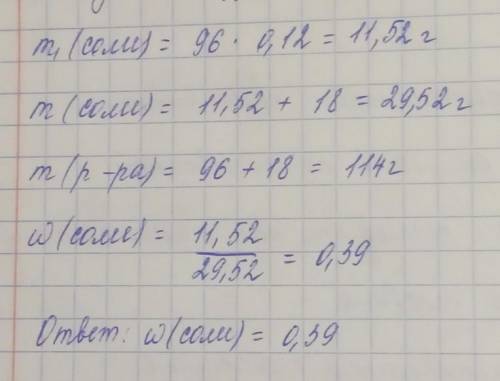 m₁ (соли) = 96 · 0,12 = 11,52 г
m (соли) = 11,52 + 18 = 29,52 г
m (р-ра) = 96 + 18 = 114 г
ω (соли) = 11,52 / 29,52 = 0,39
Ответ: ω (соли) = 0,39